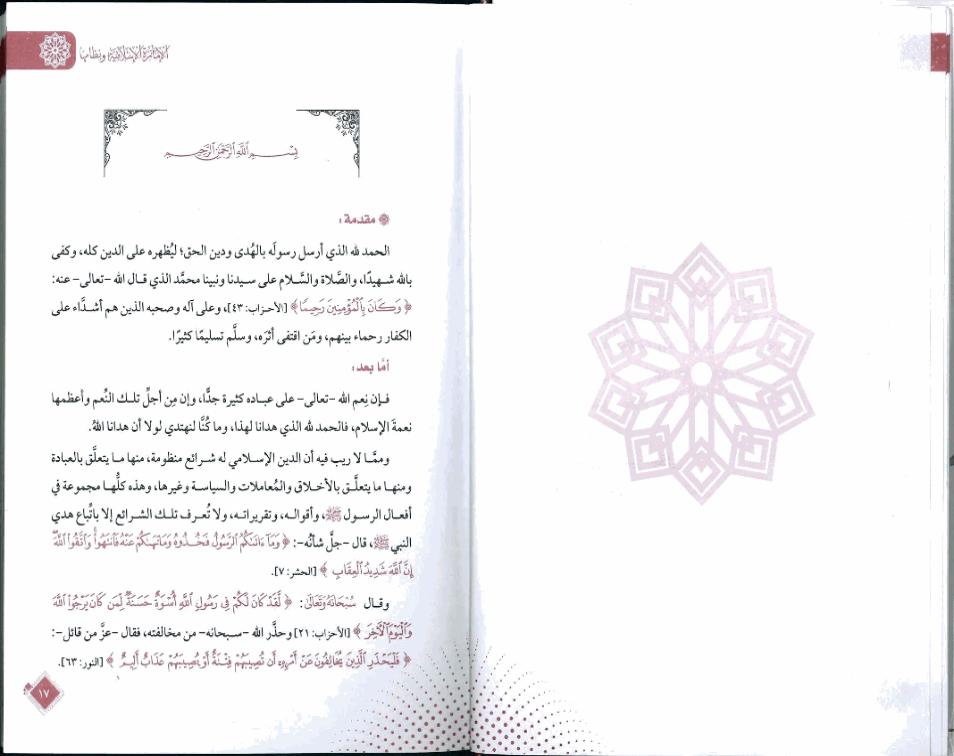 الإمارة الإسلامية ونظامها
بِسْمِ اللَّهِ الرَّحْمَٰنِ الرَّحِيمِ
مقدمة:
الحمد لله الذي أرسل رسولَه بالهُدى ودين الحق؛ ليُظهره على الدين كله، وكفى
بالله شهيدًا، والصَّلاة والسَّلام على سيدنا ونبينا محمَّد الذي قال الله -تعالى- عنه:
﴿ وَكَانَ بِٱلْمُؤْمِنِينَ رَحِيمًا ﴾ [الأحزاب: ٤٣]، وعلى آله وصحبه الذين هم أشدَّاء على
الكفار رحماء بينهم، ومَن اقتفى أثرَه، وسلَّم تسليمًا كثيرًا.
أمَّا بعد:
فإن نِعم الله -تعالى- على عباده كثيرة جدًّا، وإن مِن أجلِّ تلك النِّعم وأعظمها
نعمةَ الإسلام، فالحمد لله الذي هدانا لهذا، وما كُنَّا لنهتدي لولا أن هدانا اللهُ.
وممَّا لا ريب فيه أن الدين الإسلامي له شرائع منظومة، منها ما يتعلَّق بالعبادة
ومنها ما يتعلَّق بالأخلاق والمُعاملات والسياسة وغيرها، وهذه كلُّها مجموعة في
أفعال الرسول ﷺ، وأقواله، وتقريراته، ولا تُعرف تلك الشرائع إلا باتِّباع هدي
النبي ﷺ، قال -جلَّ شأنُه-: ﴿ وَمَآ ءَاتَىٰكُمُ ٱلرَّسُولُ فَخُذُوهُ وَمَا نَهَىٰكُمْ عَنْهُ فَٱنتَهُوا۟ وَٱتَّقُوا۟ ٱللَّهَ
إِنَّ ٱللَّهَ شَدِيدُ ٱلْعِقَابِ ﴾ [الحشر: ٧].
وقال سُبْحَانَهُ وَتَعَالَى: ﴿ لَّقَدْ كَانَ لَكُمْ فِى رَسُولِ ٱللَّهِ أُسْوَةٌ حَسَنَةٌ لِّمَن كَانَ يَرْجُوا۟ ٱللَّهَ
وَٱلْيَوْمَ ٱلْءَاخِرَ ﴾ [الأحزاب: ٢١] وحذَّر الله -سبحانه- من مخالفته، فقال -عزَّ من قائل-:
﴿ فَلْيَحْذَرِ ٱلَّذِينَ يُخَالِفُونَ عَنْ أَمْرِهِۦٓ أَن تُصِيبَهُمْ فِتْنَةٌ أَوْ يُصِيبَهُمْ عَذَابٌ أَلِيمٌ ﴾ [النور: ٦٣].
١٧